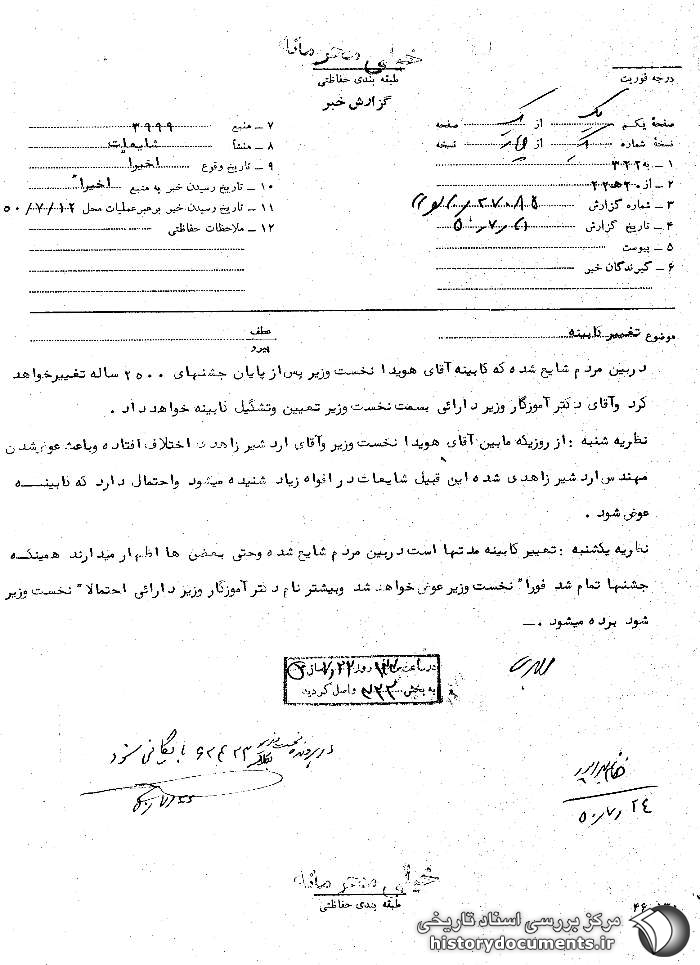 خیلی محرمانه
طبقه بندی حفاظتی
درجه فوریت
گزارش خبر
صفحهٔ یکم یک از یک صفحه
نسخهٔ شماره از نسخه
۱ ـ به ۳۲۲
۲ ـ از ۲۰ هـ ۲۲
۳ ـ شماره گزارش
۴ ـ تاریخ گزارش
۵ ـ پیوست
۶ ـ گیرندگان خبر
۷ ـ منبع ۳۹۹۹
۸ ـ منشأ شایعات
۹ ـ تاریخ وقوع اخیرا
۱۰ ـ تاریخ رسیدن خبر به منبع اخیرا"
۱۱ ـ تاریخ رسیدن خبر برهبر عملیات محل ۵۰/۷/۱۲
۱۲ ـ ملاحظات حفاظتی
موضوع تغییر کابینه
عطف
پیرو
دربین مردم شایع شده که کابینه آقای هویدا نخست وزیر پس از پایان جشنهای ۲۵۰۰ ساله تغییر خواهد
کرد وآقای دکتر آموزگار وزیر دارائی بسمت نخست وزیر تعیین وتشگیل کابینه خواهد داد .
نظریه شنبه : از روزیکه مابین آقای هویدا نخست وزیر وآقای ارد شیر زاهدی اختلاف افتاده وباعث عوض شدن
مهندس ارد شیر زاهدی شده این قبیل شایعات در افواه زیاد شنیده میشود واحتمال دارد که کابینــــه
عوض شود .
نظریه یکشنبه : تعییر کابینه مدتها است دربین مردم شایع شده وحتی بعضی ها اظهار میدارند همینکه
جشنها تمام شد فورا" نخست وزیر عوض خواهد شد وبیشتر نام دکتر آموزگار وزیر دارائی احتمالا" نخست وزیر
شود برده میشود .ـ
در ساعت روز ۷/۲۲
به بخش ۳۲۲ واصل گردید
در پرونده نخست وزیر ۶۲۴۲۳ بایگانی شود
۵۰/۷/۲۴
خیلی محرمانه
طبقه بندی حفاظتی
مرکز بررسی اسناد تاریخی
historydocuments.ir